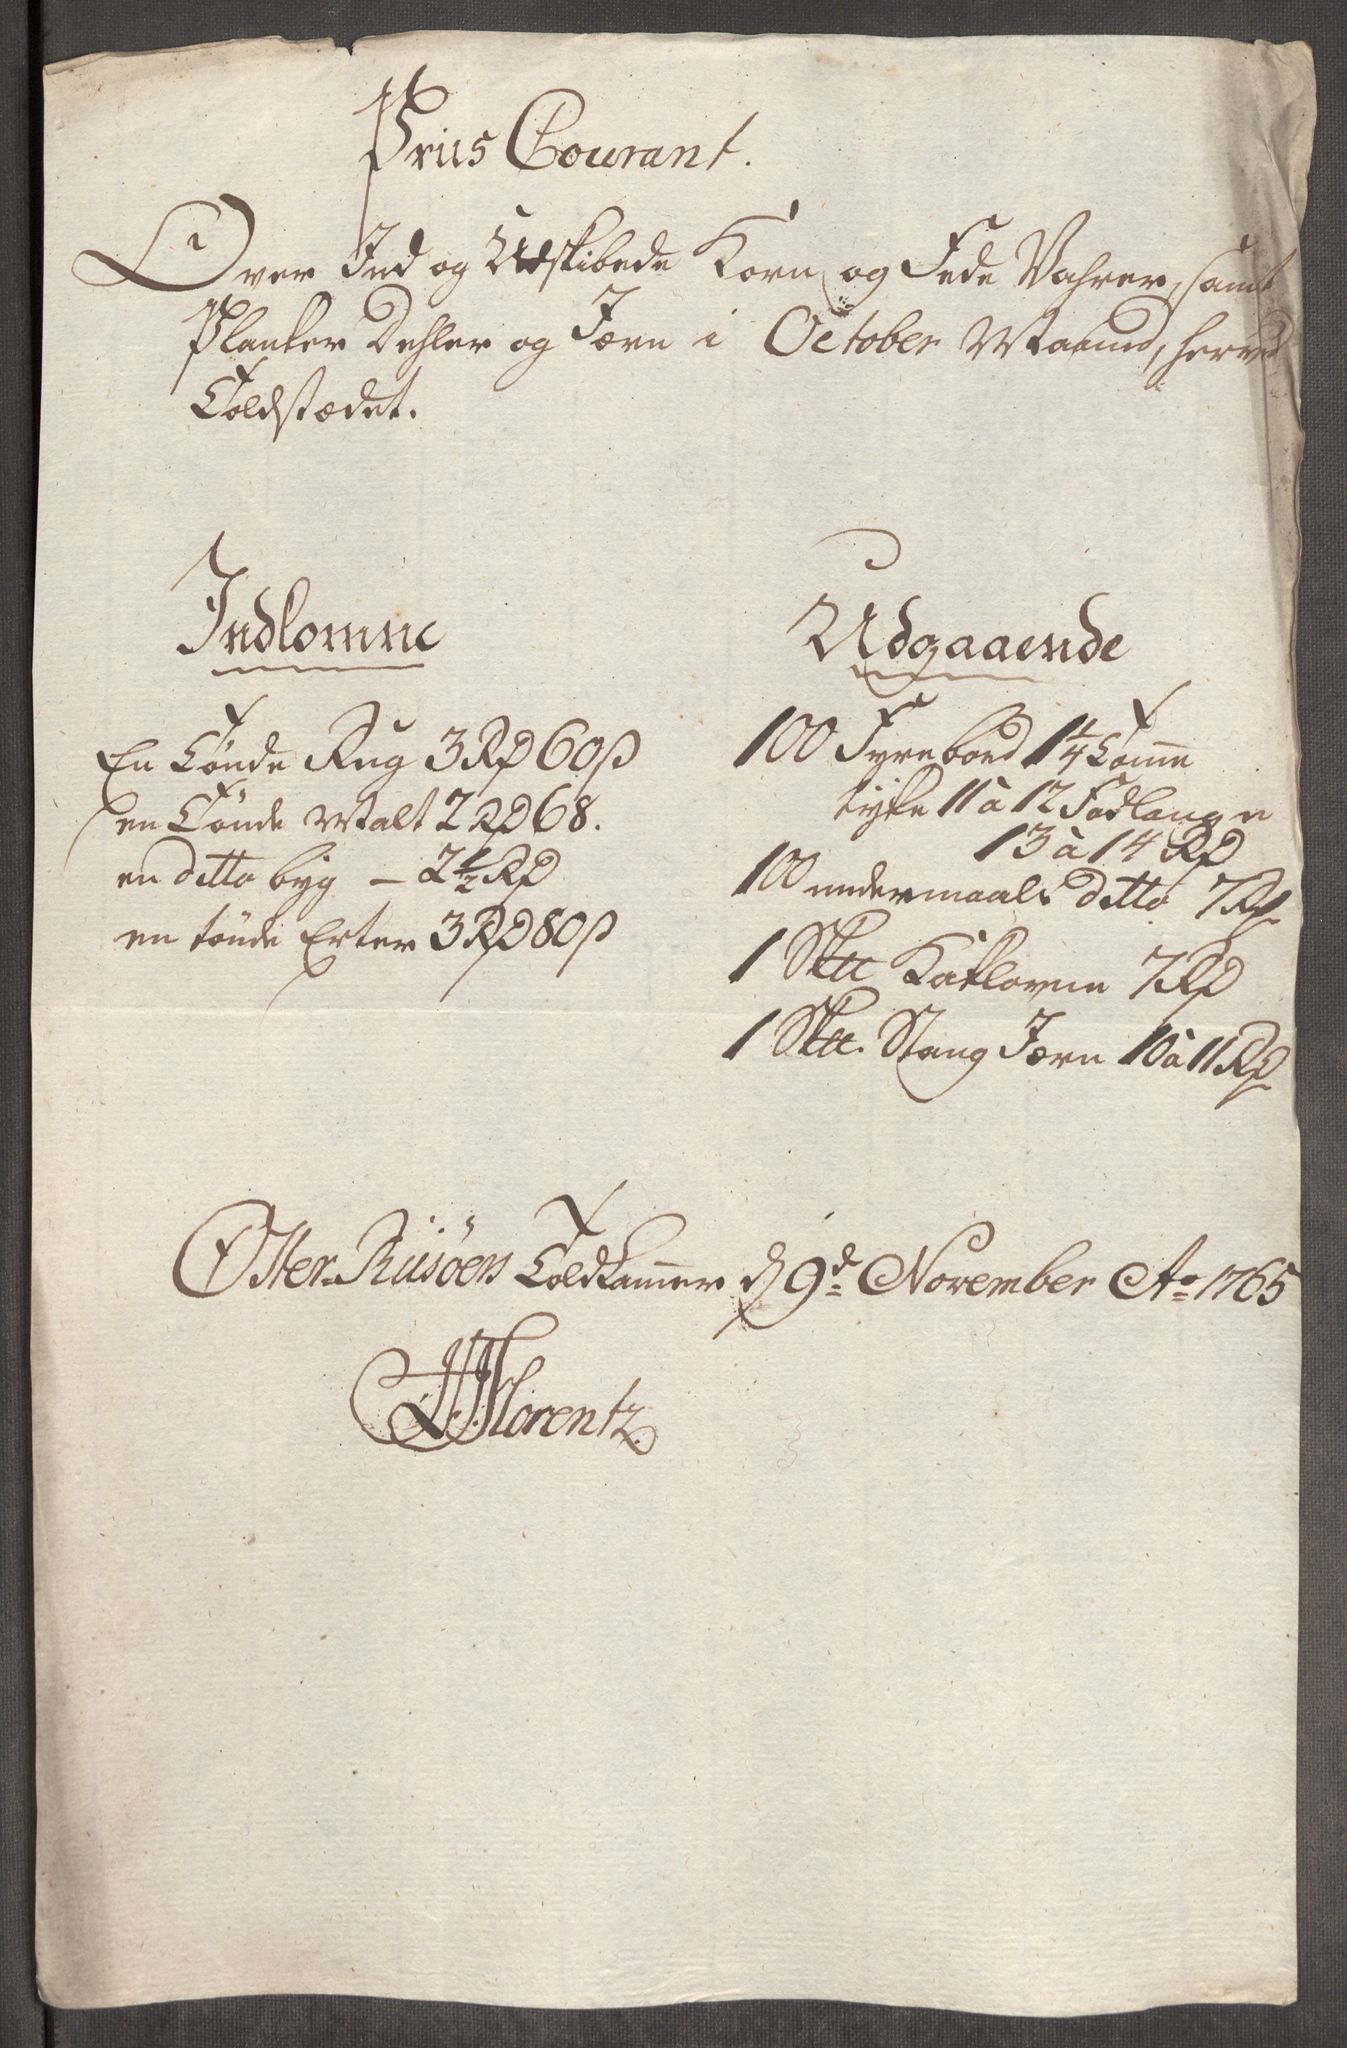 Priis Courant.
Over Ind og Udskibede Korn og Fede Vahrer, samt
Planker Dehler og Jærn i October Maaned, herved
Toldstædet.
Indkomne
En Tønde Rug 3 Rd 60 ß
en Tønde Malt 2 Rd 68.
en ditto byg – 2 1/2 Rd
en tønde Erter 3 Rd 80 ß
Udgaaende
100 Fyrebord 1 1/4 Tomme
tyke 11 à 12 Fod lange
13 à 14 Rd
100 undermaals ditto 7 Rd
1 Sk℔ Kakloune 7 Rd
1 Sk℔. Stang Jærn 10 à 11 Rd
Øster-Riisöers Toldkammer d 9d November Ao 1765
Florentz